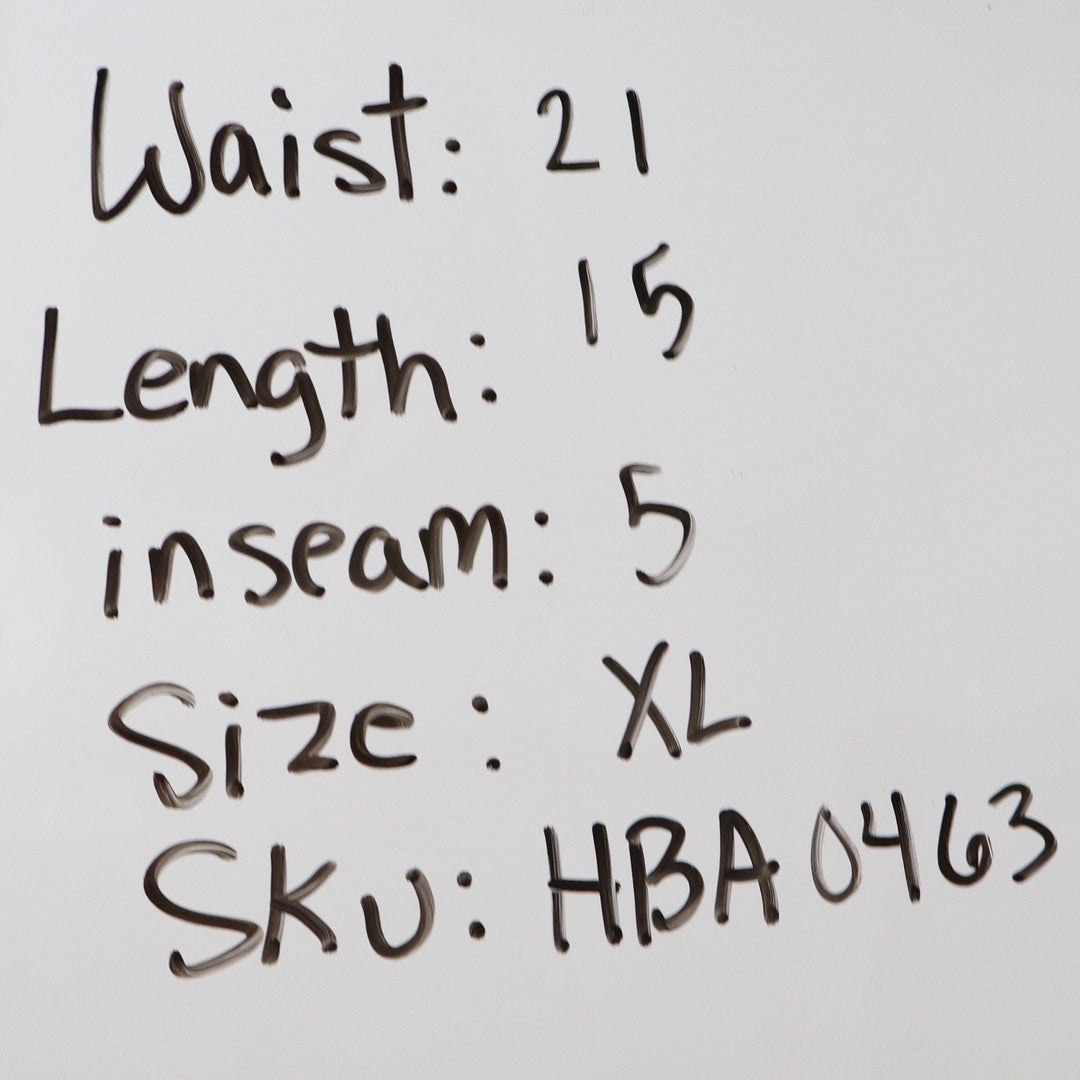 Waist: 21
Length: 15
inseam: 5
Size: XL
SKU: HBA0463